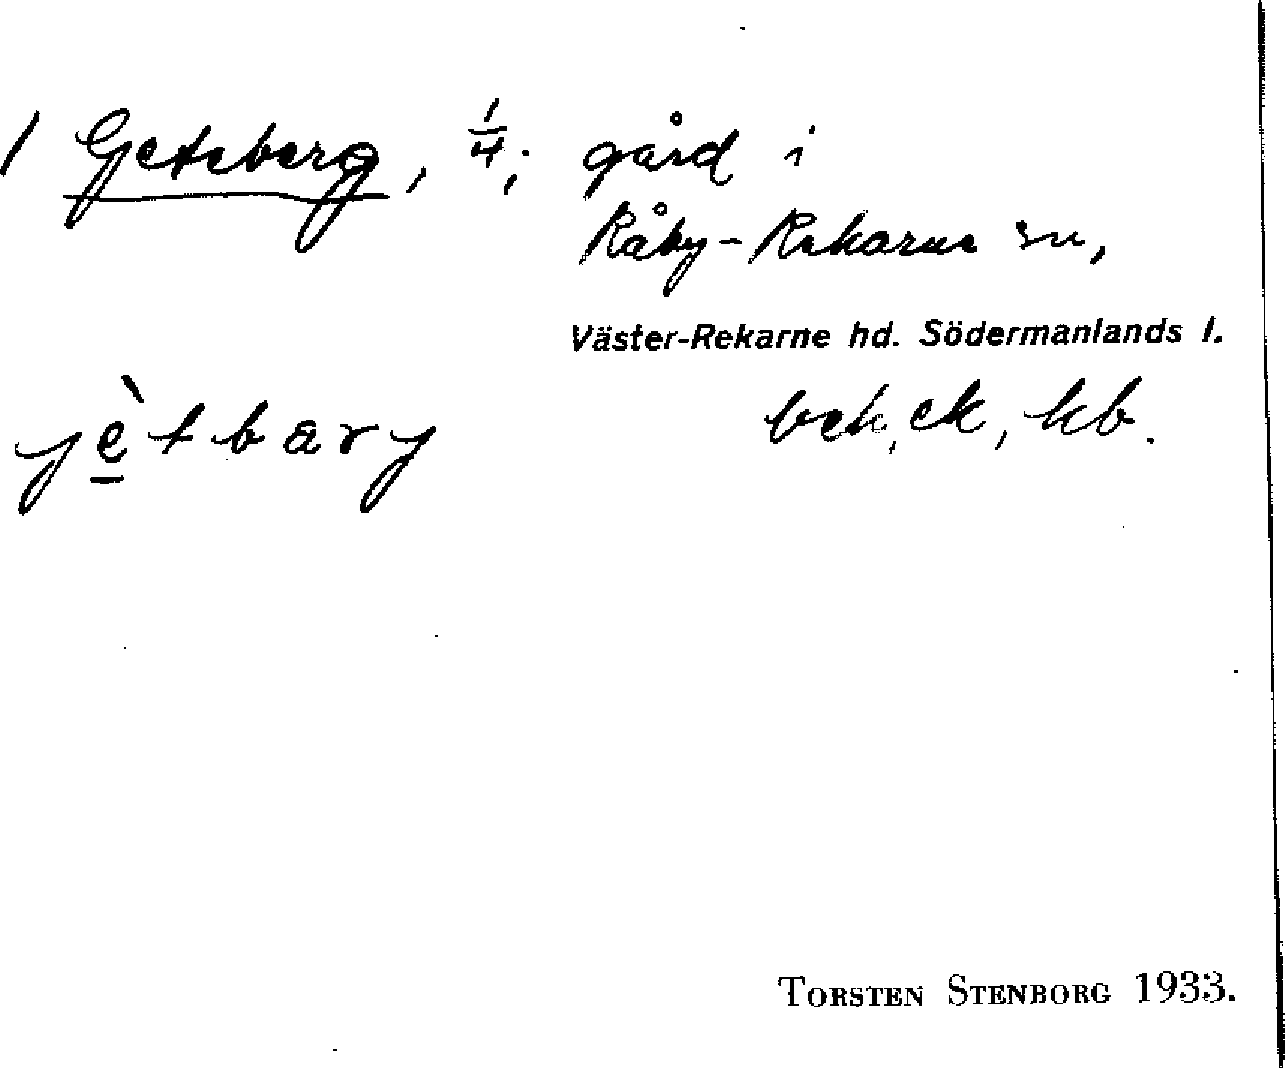 1 Geteberg, 1/4; gård i
Råby-Rekarne sn,
Väster-Rekarne hd. Södermanlands l.
jètbærj
bek, ek, kb.
TORSTEN STENBORG 1933.